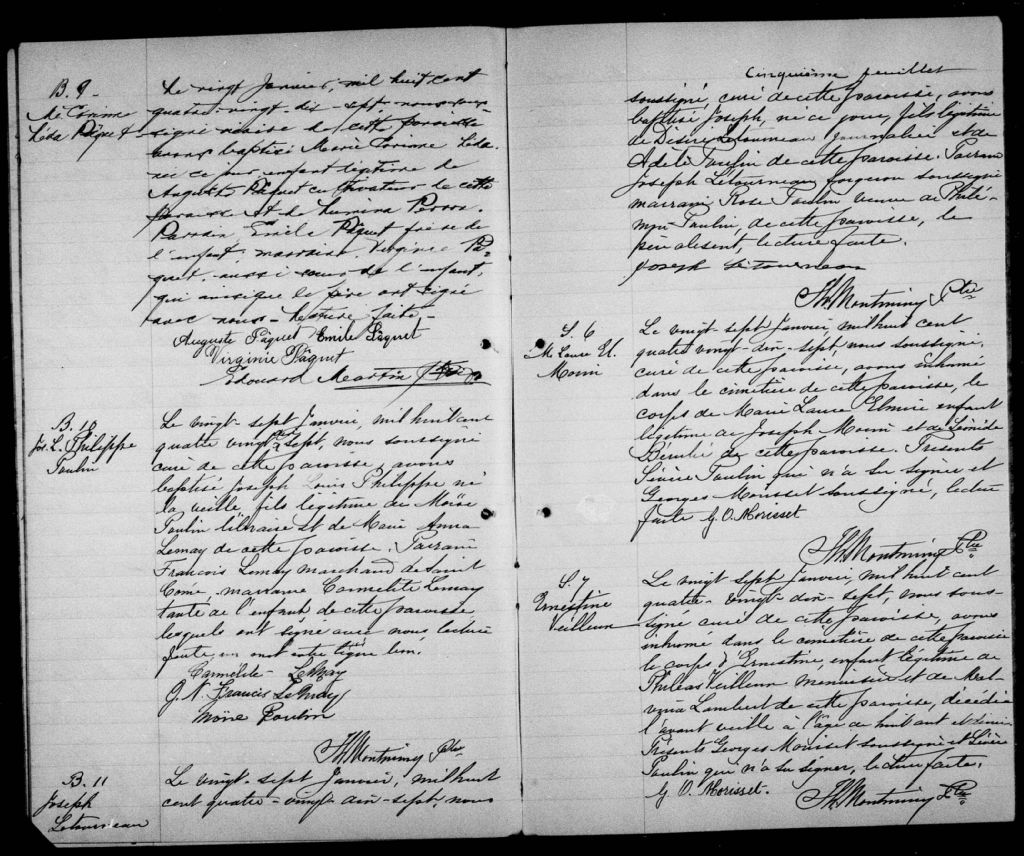 B. 9
M. Corinne
Léda Pâquet
Le vingt Janvier, mil huit cent
quatre-vingt-dix-sept nous sous-
signé vicaire de cette paroisse
avons baptisé Marie Corinne Léda
née ce jour enfant légitime de
Auguste Pâquet cultivateur de cette
paroisse et de
Parrain Emile Pâquet frère de
l'enfant, marraine, Virginie Pâ-
quet, aussi soeur de l'enfant,
qui ainsique le père ont signé
avec nous - Lecture faite -
Auguste Pâquet Emile Pâquet
Virginie Pâquet
Edouard Martin Ptre
B. 10
Jos. L. Philippe
Poulin
Le vingt-sept Janvier, mil huit cent
quatre vingt dix sept, nous soussigné
curé de cette paroisse, avons
baptisé Joseph Louis Philippe né
la veille, fils légitime de Moïse
Poulin libraire et de Marie Anna
Lemay de cette paroisse. Parrain
François Lemay marchand de Saint
Come, marraine Carmelite Lemay
tante de l'enfant de cette paroisse
lesquels ont signé avec nous, lecture
faite
Carmélite Lemay
J. N. Francis LeMay
Moïse Poulin
Th Montminy Ptre
B. 11
Joseph
Letourneau
Le vingt-sept Janvier, mil huit
cent quatre-vingt-dix-sept nous
Cinquième feuillet
soussigné, curé de cette paroisse, avons
baptisé Joseph, né ce jour, fils légitime
de Désiré Letourneau journalier et de
Adèle Poulin de cette paroisse. Parrain
Joseph Letourneau forgeron soussigné
marraine Rose Poulin veuve de Philé-
mon Poulin, de cette paroisse, le
père absent, lecture faite.
Joseph Letourneau
Th Montminy Ptre
S. 6
M. Laure El.
Morin
Le vingt-sept Janvier, mil huit cent
quatre vingt-dix-sept, nous soussigné,
curé de cette paroisse, avons inhumé
dans le cimetière de cette paroisse, le
corps de Marie Laure Elmire enfant
légitime de Joseph Morin et de
de cette paroisse. Présents
Poulin qui n'a su signer et
Georges Morisset soussigné, lecture
faite G. O. Morisset
Th Montminy Ptre
S. 7
Ernestine
Veilleux
Le vingt sept Janvier, mil huit cent
quatre-vingt-dix-sept, nous sous-
signé curé de cette paroisse, avons
inhumé dans le cimetière de cette paroisse
le corps d'Ernestine, enfant légitime de
Philéas Veilleux menuisier et de Mal-
vina Lambert de cette paroisse, décédée
l'avant veille à l'âge de huit ans et demi.
Présents Georges Morisset soussigné et
Poulin qui n'a su signer, lecture faite.
G. O. Morisset.
Th Montminy Ptre